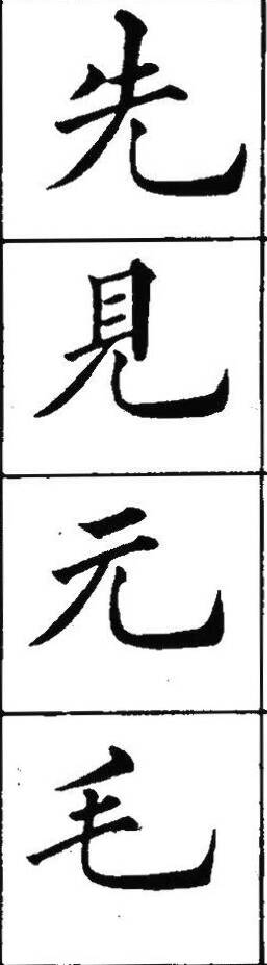 先
見
元
毛